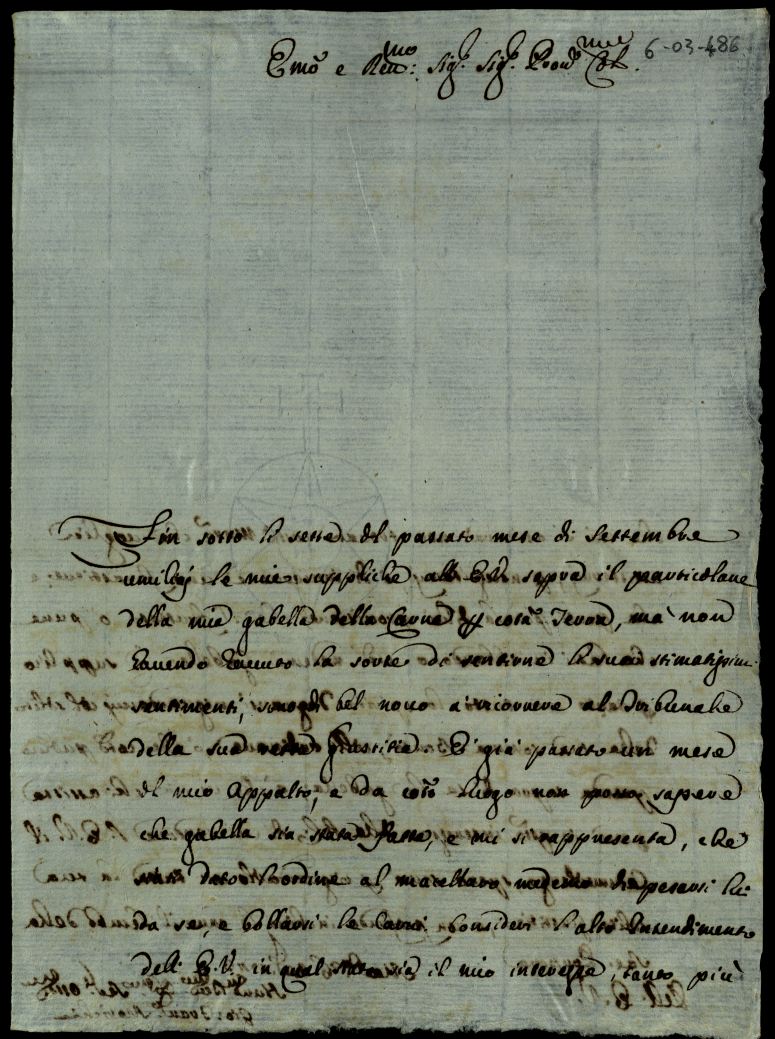 6-03-486
Emo e Reumo: Sigr. Sigr. Pron Col.
Fin sotto li sette del passato mese di Settembre
umiliai le mie suppliche all' E.V. sopra il particolare
della mia gabella della Carne per cotã Terra, mà non
havendo havuto la sorte di sentire li suoi stimatissimi
sentimenti, sono di bel novo a ricorrere al Tribunale
della sua retta Giustitia. E già passato un mese
del mio Appalto, e da coto Luogo non posso sapere
che gabella sia stata fatta, e mi si rappresenta, che
dato ordine al macellaro medemo di pesarsi lui
da se, e bollarsi le Carni. Consideri l'alto Intendimento
dell' E.V. in qual stato sia il mio interesse, tanto più
Dell' E.V.